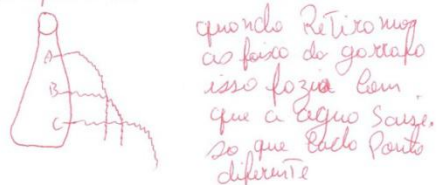 A
B
C
quando Retiramos
as faixa da garrafa
isso fazia com
que a água saisse.
so que cada Ponto
diferente